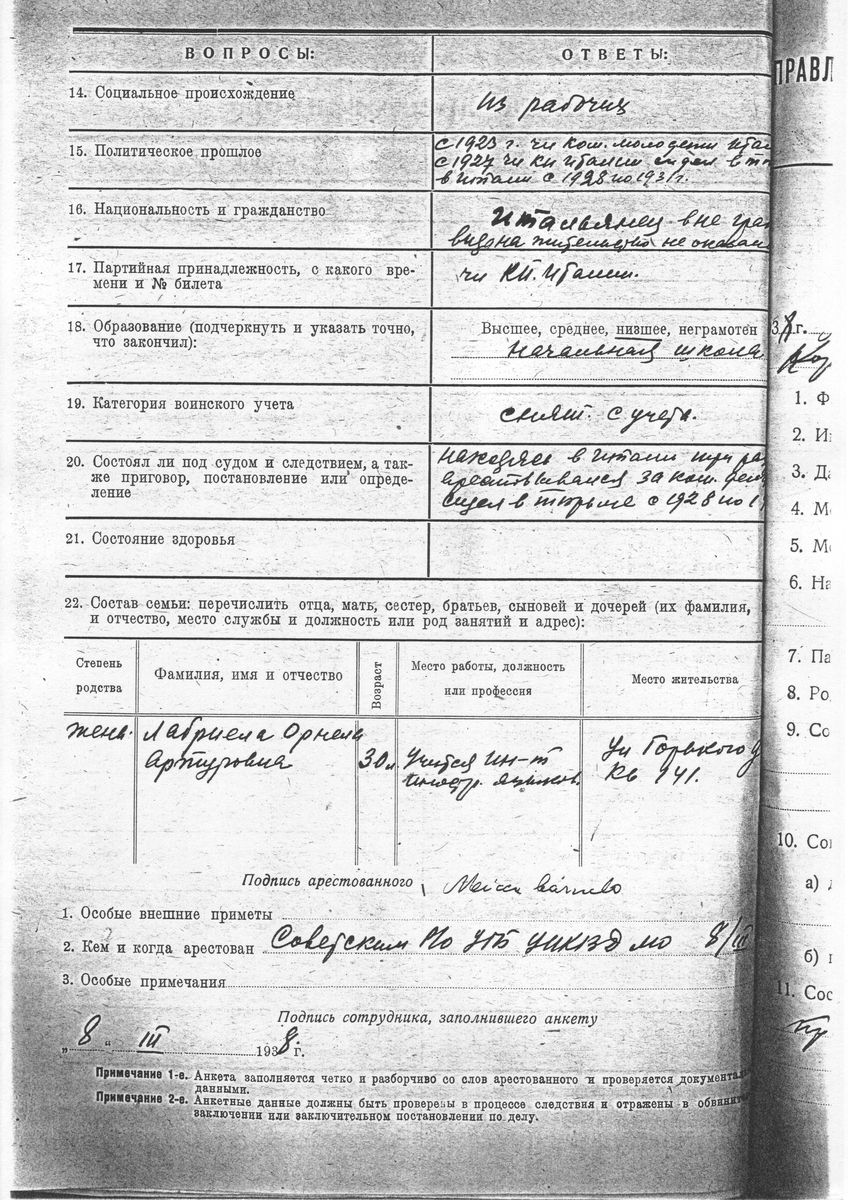 ВОПРОСЫ: ОТВЕТЫ:
14. Социальное происхождение из рабочих
15. Политическое прошлое
с 1923 г. чл ком. молодежи Итал
с 1927 чл КП Италии сидел в тю
в Италии с 1928 по 1931 г.
16. Национальность и гражданство Итальянец вне граж
вида на жительство не оказал
17. Партийная принадлежность, с какого вре-
мени и № билета
чл КП. Италии.
18. Образование (подчеркнуть и указать точно,
что закончил):
Высшее, среднее, низшее, неграмотен
начальная школа
19. Категория воинского учета снят с учета.
20. Состоял ли под судом и следствием, а так-
же приговор, постановление или опреде-
ление
находясь в Италии три раз
арестовывался за ком. деят
сидел в тюрьме с 1928 по 1
21. Состояние здоровья
22. Состав семьи: перечислить отца, мать, сестер, братьев, сыновей и дочерей (их фамилия,
и отчество, место службы и должность или род занятий и адрес):
Степень
родства
Фамилия, имя и отчество
Возраст
Место работы, должность
или профессия
Место жительства
жена. Лабриела Орнела
Артуровна
30 л.
Учится Ин-т
иностр. языков.
ул Горького д
кв 141.
Подпись арестованного
1. Особые внешние приметы
2. Кем и когда арестован Советским РО УГБ УНКВД МО 8/III
3. Особые примечания
Подпись сотрудника, заполнившего анкету
„8“ III 1938 г.
Примечание 1-е. Анкета заполняется четко и разборчиво со слов арестованного и проверяется документал
данными.
Примечание 2-е. Анкетные данные должны быть проверены в процессе следствия и отражены в обвинит
заключении или заключительном постановлении по делу.
ПРАВЛ
38 г.
1. Ф
2. И
3. Да
4. М
5. М
6. На
7. Па
8. Ро
9. Со
10. Сог
а) л
б) г
11. Сос